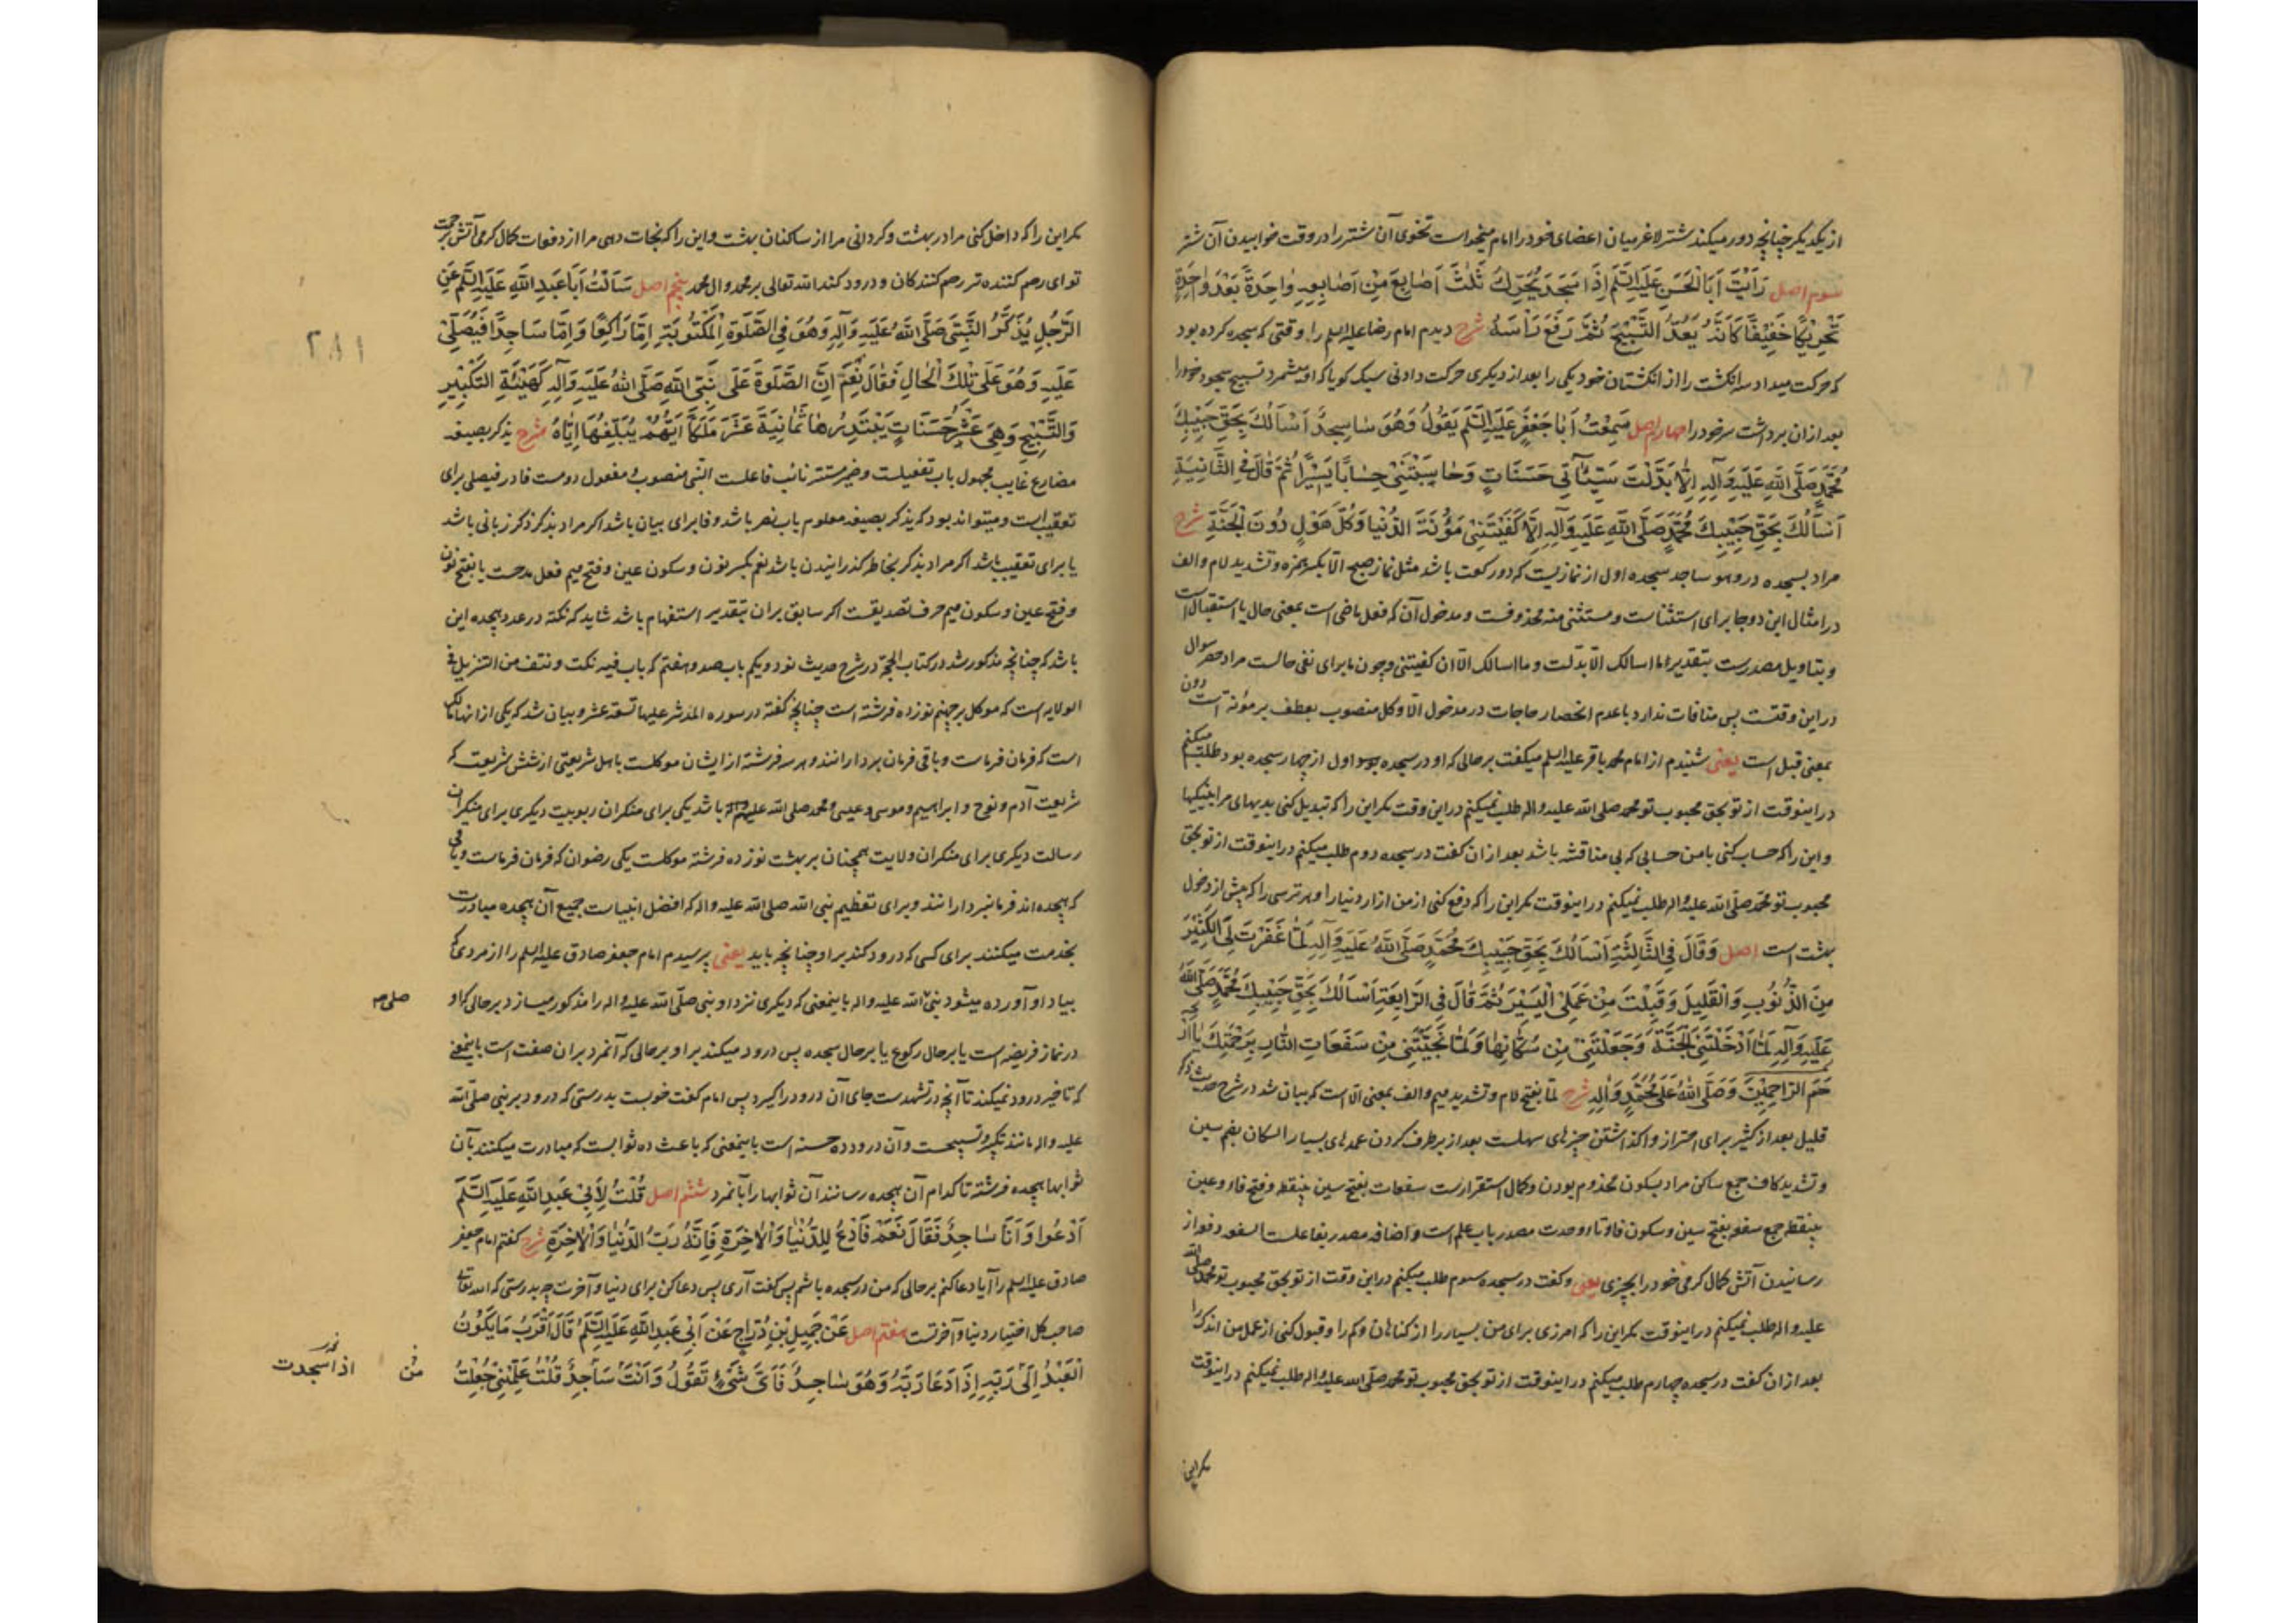 از یکدیگر چنانچه دور میکند شتر لاغر میان اعضای خود را امام میجد است تخوی آن شتر را در وقت خوابیدن آن شتر
سوم اصل رَاَیْتُ اَبَا الْحَسَنِ عَلَیْهِ السَّلَمُ اِذَا سَجَدَ یُحَرِّكُ ثَلٰثَ اَصَابِعَ مِنْ اَصَابِعِهِ وٰاحِدَةً بَعْدَ وٰاحِدَةٍ
تَحْرِیْکًا خَفِیْفًا کَاَنَّهُ یَعُدُّ التَّسْبِیْحَ ثُمَّ رَفَعَ رَاْسَهُ شرح دیدم امام رضا علیه السلم را وقتی که سجده کرده بود
که حرکت میداد سه انکشت را از انکشتان خود یکی را بعد از دیکری حرکت دادنی سبک کویا که او میشمرد تسبیح سجود خود را
بعد از ان برداشت سر خود را چهارم اصل سَمِعْتُ اَبَا جَعْفَرٍ عَلَیْهِ السَّلَمُ یَقُوْلُ وَهُوَ سٰاجِدٌ اَسْاَلُكَ بِحَقِّ حَبِیْبِكَ
مُحَمَّدٍ صَلَّی اللّٰهُ عَلَیْهِ وَآلِهِ اِلَّا بَدَّلْتَ سَیِّئٰآتِی حَسَنَاتٍ وَحٰاسَبْتَنِیْ حِسٰابًا یَسِیْرًا ثُمَّ قٰالَ فِی الثَّانِیَةِ
اَسْاَلُكَ بِحَقِّ حَبِیْبِكَ مُحَمَّدٍ صَلَّی اللّٰهُ عَلَیْهِ وَآلِهِ اِلَّا کَفَیْتَنِیْ مَؤُنَةَ الدُّنْیَا وَکُلَّ هَوْلٍ دُوْنَ الْجَنَّةِ شرح
مراد بسجده در وهو ساجد سجده اول از نمازیست که دو رکعت باشد مثل نماز صبح الّا بکسر همزه و تشدید لام والف
در امثال این دو جا برای استثناست و مستثنی منه محذوفست و مدخول آن که فعل ماضی است بمعنی حال یا استقبال است
و بتاویل مصدرست بتقدیر ما اسالک الّا بدّلت و ما اسالک الّا ان کفیتنی و چون ما برای نفی حالست مراد حصر سوال
در این وقتست پس منافات ندارد با عدم انحصار حاجات در مدخول الّا و کل منصوب بعطف بر مؤنة است دون
بمعنی قبل است یعنی شنیدم از امام محمد باقر علیه السلم میکفت بر حالی که او در سجده بود اول از چهار سجده بود طلب میکنم
در اینوقت از تو بحق محبوب تو محمد صلی الله علیه واله طلب نمیکنم در این وقت مکر این را که تبدیل کنی بدیهای مرا بنیکیها
و این را که حساب کنی با من حسابی که بی مناقشه باشد بعد از ان کفت در سجده دوم طلب میکنم در اینوقت از تو بحق
محبوب تو محمد صلّی الله علیه واله طلب نمیکنم در اینوقت مکر این را که دفع کنی از من ازار دنیا را و هر ترسی را که پیش از دخول
بهشت است اصل وَقَالَ فِی الثَّالِثَةِ اَسْاَلُكَ بِحَقِّ حَبِیْبِكَ مُحَمَّدٍ صَلَّی اللّٰهُ عَلَیْهِ وَآلِهِ لَمَّا غَفَرْتَ لِیَ الْکَثِیْرَ
مِنَ الذُّنُوْبِ وَالْقَلِیلَ وَقَبِلْتَ مِنْ عَمَلِیَ الْیَسِیْرَ ثُمَّ قَالَ فِی الرّٰابِعَةِ اَسْاَلُكَ بِحَقِّ حَبِیْبِكَ مُحَمَّدٍ صَلَّی اللّٰهُ
عَلَیْهِ وَآلِهِ لَمَّا اَدْخَلْتَنِی الْجَنَّةَ وَجَعَلْتَنِیْ مِنْ سُکّٰانِهٰا وَلَمَّا نَجَّیْتَنِیْ مِنْ سَفَعَاتِ النَّارِ بِرَحْمَتِكَ یٰا اَرْ
حَمَ الرّٰاحِمِیْنَ وَصَلَّی اللّٰهُ عَلٰی مُحَمَّدٍ وَآلِهِ شرح لمّا بفتح لام و تشدید میم والف بمعنی الّا است که بیان شد در شرح حدیث ذکر
قلیل بعد از کثیر برای احتراز واکذاشتن چیزهای سهلست بعد از برطرف کردن عمدهای بسیار السکان بضم سین
و تشدید کاف جمع ساکن مراد بسکون مخدوم بودن و کمال استقرارست سفعات بفتح سین بینقطه و فتح فا و عین
بینقطه جمع سفعه بفتح سین و سکون فا و تا و وحدت مصدر باب علم است و اضافه مصدر بفاعلست السفعه دفع از
رسانیدن آتش کمال کرمی خود را بچیزی یعنی و کفت در سجده سوم طلب میکنم در این وقت از تو بحق محبوب تو محمد صلی الله
علیه واله طلب نمیکنم در اینوقت مکر این را که امرزی برای من بسیار را از کناهان و کم را و قبول کنی از عمل من اندک را
بعد از ان کفت در سجده چهارم طلب میکنم در اینوقت از تو بحق محبوب تو محمد صلّی الله علیه واله طلب نمیکنم در اینوقت
مکر این
مکر این را که داخل کنی مرا در بهشت و کردانی مرا از ساکنان بهشت و این را که نجات دهی مرا از دفعات کمال کرمی آتش برحمت
تو ای رحم کننده تر رحم کنندکان و درود کند الله تعالی بر محمد وال محمد پنجم اصل سَاَلْتُ اَبَا عَبْدِ اللّٰهِ عَلَیْهِ السَّلَمُ عَنِ
الرَّجُلِ یُذَکَّرُ النَّبِیَّ صَلَّی اللّٰهُ عَلَیْهِ وَآلِهِ وَهُوَ فِی الصَّلٰوةِ الْمَکْتُوْبَةِ اِمَّا رَاکِعًا وَاِمَّا سَاجِدًا فَیُصَلِّیْ
۲۸۱
عَلَیْهِ وَهُوَ عَلٰی تِلْكَ الْحَالِ فَقَالَ نَعَمْ اِنَّ الصَّلٰوةَ عَلٰی نَبِیِّ اللّٰهِ صَلَّی اللّٰهُ عَلَیْهِ وَآلِهِ کَهَیْئَةِ التَّکْبِیْرِ
وَالتَّسْبِیْحِ وَهِیَ عَشْرُ حَسَنَاتٍ یَبْتَدِرُهَا ثَمٰانِیَةَ عَشَرَ مَلَکًا اَیُّهُمْ یُبَلِّغُهَا اِیّٰاهُ شرح یذکر بصیغه
مضارع غایب مجهول باب تفعیلست و ضمیر مستتر نائب فاعلست النبی منصوب و مفعول دومست فا در فیصلی برای
تعقیب است و میتواند بود که یذکر بصیغه معلوم باب نصر باشد و فا برای بیان باشد اکر مراد بذکر ذکر زبانی باشد
یا برای تعقیب باشد اکر مراد بذکر بخاطر کذرانیدن باشد نعم بکسر نون و سکون عین و فتح میم فعل مدحست یا بفتح نون
و فتح عین و سکون میم حرف تصدیقست اکر سابق بران بتقدیر استفهام باشد شاید که نکته در عدد هجده این
باشد که چنانچه مذکور شد در کتاب الحجة در شرح حدیث نود و یکم باب صد و هفتم که باب فیه نکت و نتف من التنزیل فی
الولایه است که موکل بر جهنم نوزده فرشته است چنانچه کفته در سوره المدثر علیها تسعة عشر و بیان شد که یکی از انها مالک
است که فرمان فرماست و باقی فرمان بردارانند و هر سه فرشته از ایشان موکلست باهل شریعتی از شش شریعت که
شریعت آدم و نوح و ابراهیم و موسی و عیسی و محمد صلی الله علیه واله باشد یکی برای منکران ربوبیت دیکری برای منکران
رسالت دیکری برای منکران ولایت همچنان بر بهشت نوزده فرشته موکلست یکی رضوان که فرمان فرماست و باقی
که هجده اند فرمانبردارانند و برای تعظیم نبی الله صلی الله علیه واله که افضل انبیاست جمیع آن هجده مبادرت
بخدمت میکنند برای کسی که درود کند بر او چنانچه باید یعنی پرسیدم امام جعفر صادق علیه السلم را از مردی که
بیاد او آورده میشود نبی الله علیه واله باینمعنی که دیکری نزد او نبی صلّی الله علیه واله را مذکور میسازد بر حالی که او
صلی صه
در نماز فریضه است یا بر حال رکوع یا بر حال سجده پس درود میکند بر او بر حالی که آنمرد بران صفت است باینمعنی
که تاخیر درود نمیکند تا آنچه در تشهدست جای آن درود را کیرد پس امام کفت خوبست بدرستی که درود بر نبی صلّی الله
علیه واله مانند تکبیر و تسبیحست و آن درود ده حسنه است باینمعنی که باعث ده ثوابست که مبادرت میکنند بآن
ثوابها هجده فرشته تا کدام آن هجده رسانند آن ثوابها را بآنمرد ششم اصل قُلْتُ لِاَبِیْ عَبْدِ اللّٰهِ عَلَیْهِ السَّلَمُ
اَدْعُوْا وَاَنَا سٰاجِدٌ فَقَالَ نَعَمْ فَادْعُ لِلدُّنْیٰا وَالْاٰخِرَةِ فَاِنَّهُ رَبُّ الدُّنْیٰا وَالْاٰخِرَةِ شرح کفتم امام جعفر
صادق علیه السلم را آیا دعا کنم بر حالی که من در سجده باشم پس کفت آری پس دعا کن برای دنیا و آخرت چه بدرستی که الله تعالی
صاحب کل اختیار دنیا و آخرتست هفتم اصل عَنْ جَمِیْلِ بْنِ دُرّٰاجٍ عَنْ اَبِیْ عَبْدِ اللّٰهِ عَلَیْهِ السَّلَمُ قَالَ اَقْرَبُ مَا یَکُوْنُ
الْعَبْدُ اِلٰی رَبِّهِ اِذَا دَعَا رَبَّهُ وَهُوَ سٰاجِدٌ فَاَیَّ شَیْءٍ تَقُوْلُ وَاَنْتَ سَاجِدٌ قُلْتُ عَلِّمْنِیْ جُعِلْتُ
من اذا سجدت